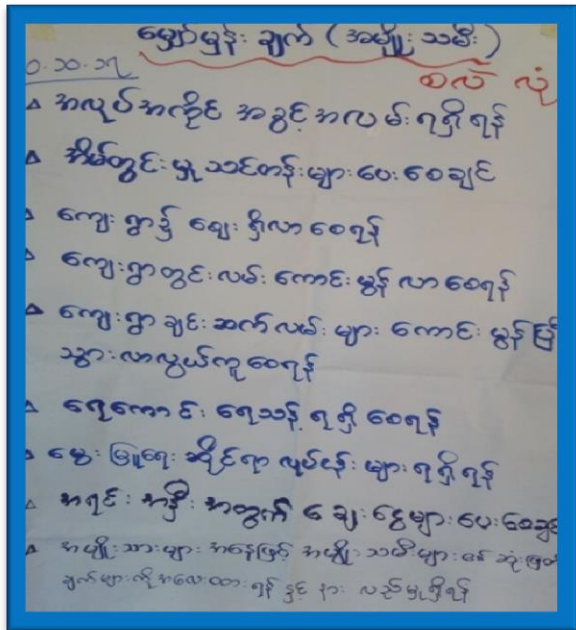 မျှော်မှန်းချက် (အမျိုးသမီး)
၀.၁၀.၁၅
စလုံ
△ အလုပ်အကိုင် အခွင့်အလမ်းရရှိရန်
△ အိမ်တွင်းမှု သင်တန်းများပေးစေချင်
△ ကျေးရွာ၌ ဈေးရှိလာစေရန်
△ ကျေးရွာတွင်း လမ်းကောင်းမွန်လာစေရန်
△ ကျေးရွာချင်းဆက်လမ်းများ ကောင်းမွန်ပြီး
သွားလာလွယ်ကူစေရန်
△ ရေကောင်းရေသန့်ရရှိစေရန်
△ မွေးမြူရေးဆိုင်ရာလုပ်ငန်းများရရှိရန်
△ အရင်းအနှီးအတွက် ချေးငွေများပေးစေချင်
△ အမျိုးသားများအနေဖြင့် အမျိုးသမီးများ၏ ဆုံးဖြတ်
ချက်များကိုအလေးထားရန်နှင့် နားလည်မှုရှိရန်